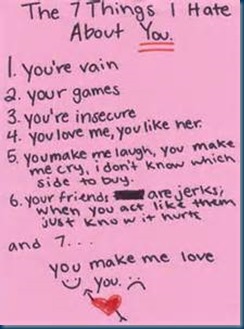 The 7 Things I Hate
About You.
1. you're vain
2. your games
3. you're insecure
4. you love me, you like her.
5. you make me laugh, you make
me cry, i don't know which
side to buy.
6. your friends are jerks;
when you act like them
just know it hurts
and 7...
you make me love
you.